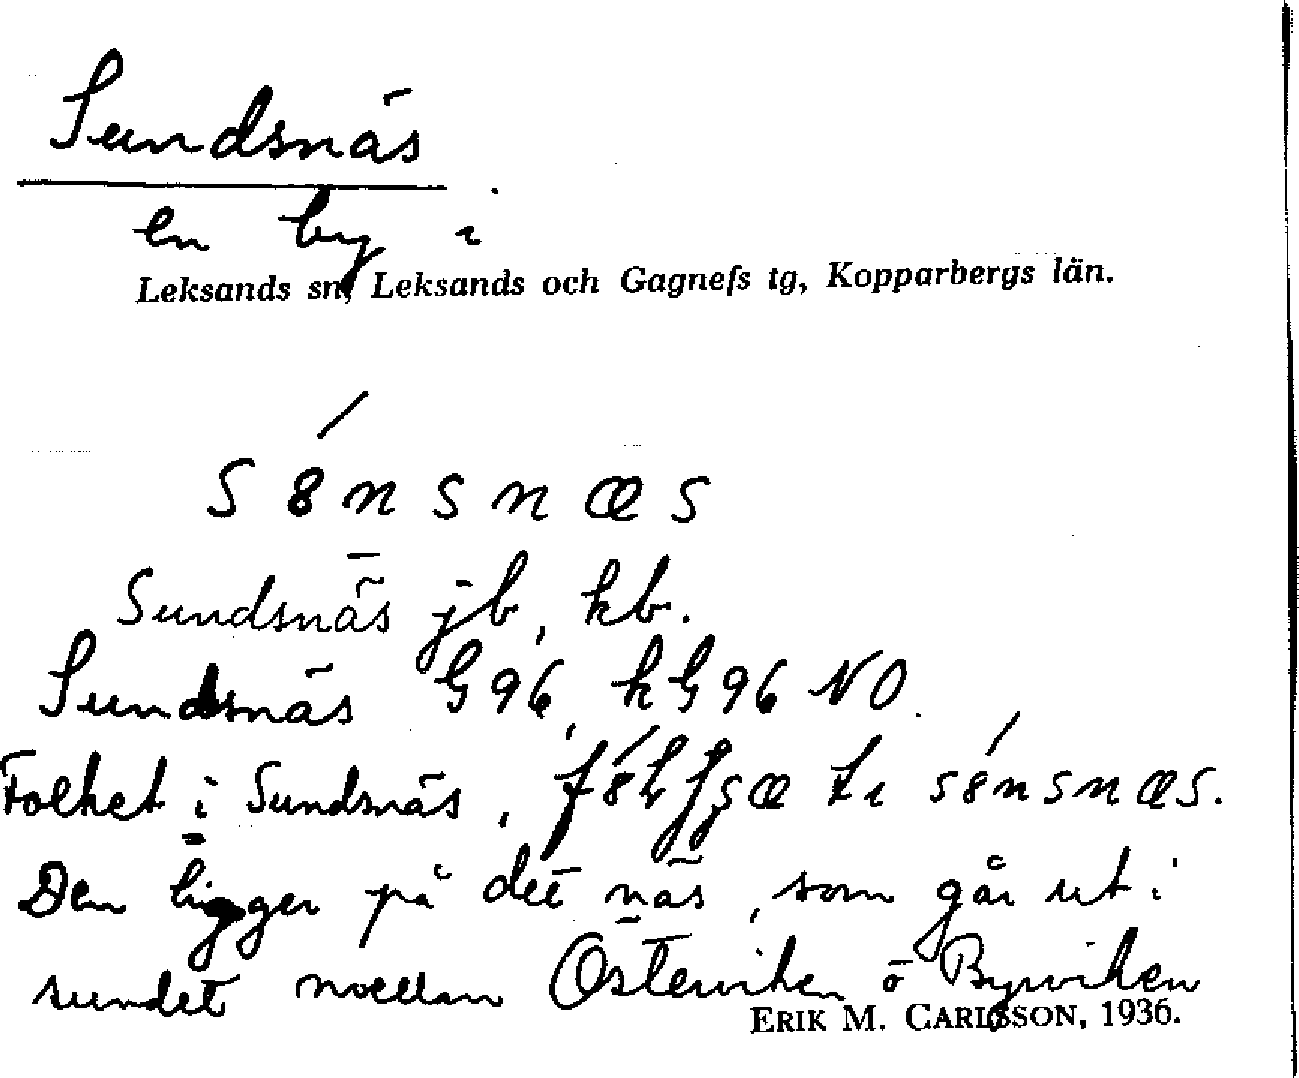 Sundsnäs
en by i
Leksands sn, Leksands och Gagnefs tg, Kopparbergs län.
s8nsnæs
Sundsnäs jb, kb.
Sundsnäs G96, hG96 NO.
Folket i Sundsnäs, ti s8nsnæs.
Den ligger på det näs, som går ut i
sundet mellan Österviken o Byviken
ERIK M. CARLSSON, 1936.